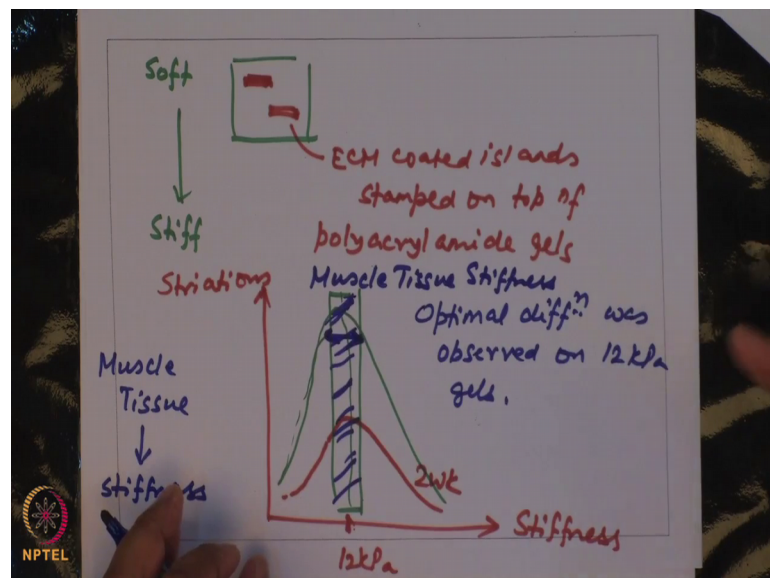 Soft
Stiff
ECM coated islands
stamped on top of
polyacrylamide gels
Striations
Muscle Tissue Stiffness
Optimal diffⁿ was
observed on 12kPa
gels.
Muscle
Tissue
Stiffness
2wk
Stiffness
12kPa
NPTEL